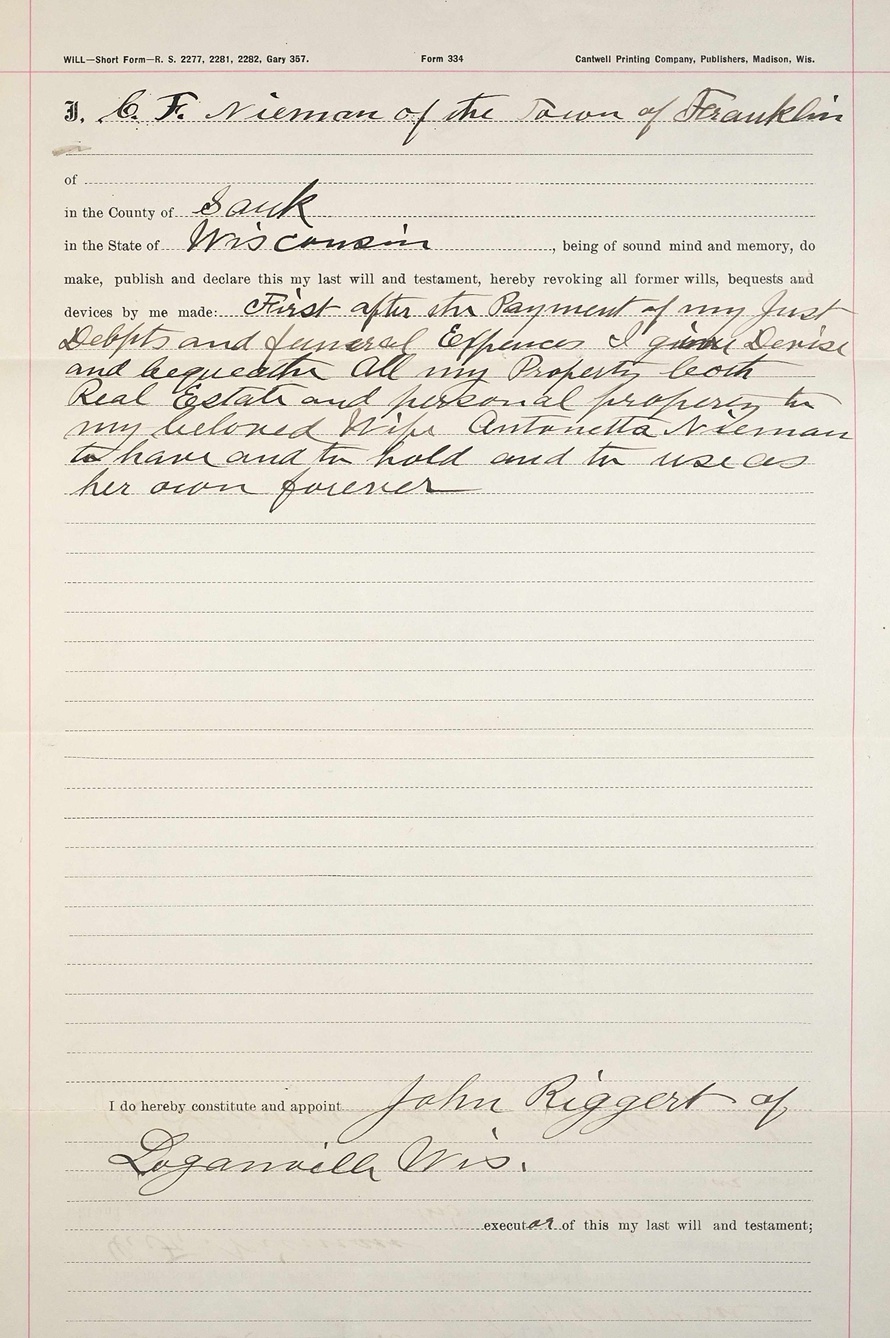 WILL—Short Form—R. S. 2277, 2281, 2282, Gary 357. Form 334 Cantwell Printing Company, Publishers, Madison, Wis.
I, C. F. Nieman of the Town of Franklin
of
in the County of Sauk
in the State of Wisconsin, being of sound mind and memory, do
make, publish and declare this my last will and testament, hereby revoking all former wills, bequests and
devices by me made: First after the Payment of my Just
Debpts and funeral Expences I give Devise
and bequeathe All my Property both
Real Estate and personal property to
my beloved Wife Antonetta Nieman
to have and to hold and to use as
her own forever
I do hereby constitute and appoint John Riggert of
Loganville Wis.
executor of this my last will and testament;